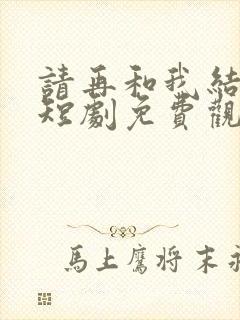 請再和我結
短劇免費觀
馬上鷹将末